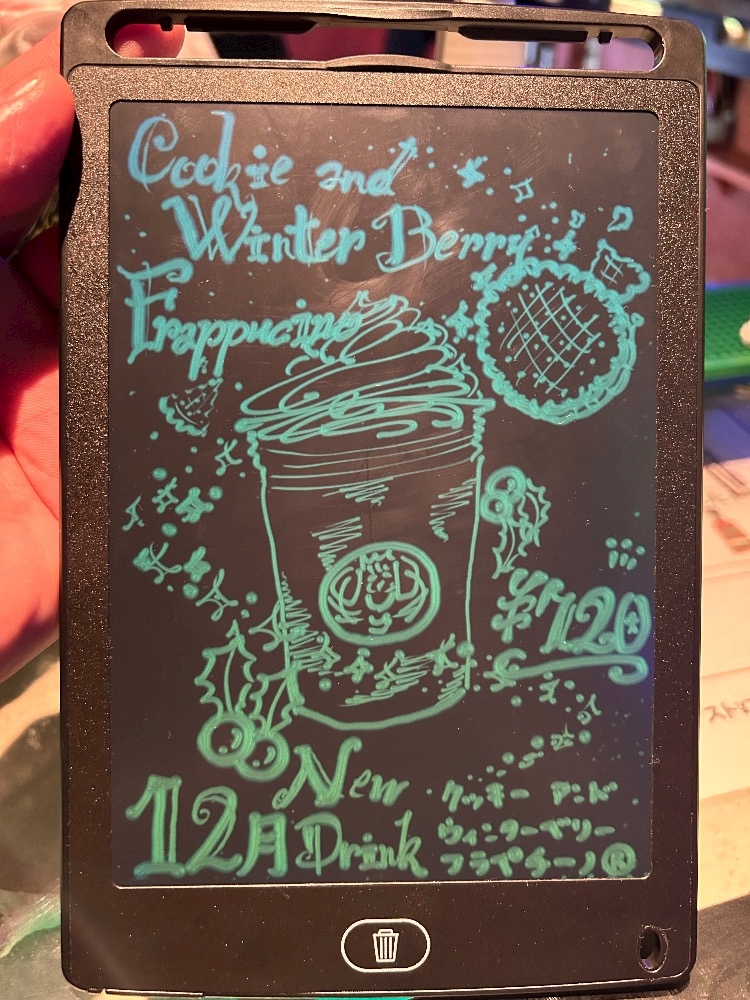 Cookie and
Winter Berry
Frappucino
¥720
New
12月 Drink
クッキー アンド
ウィンターベリー
フラペチーノ®